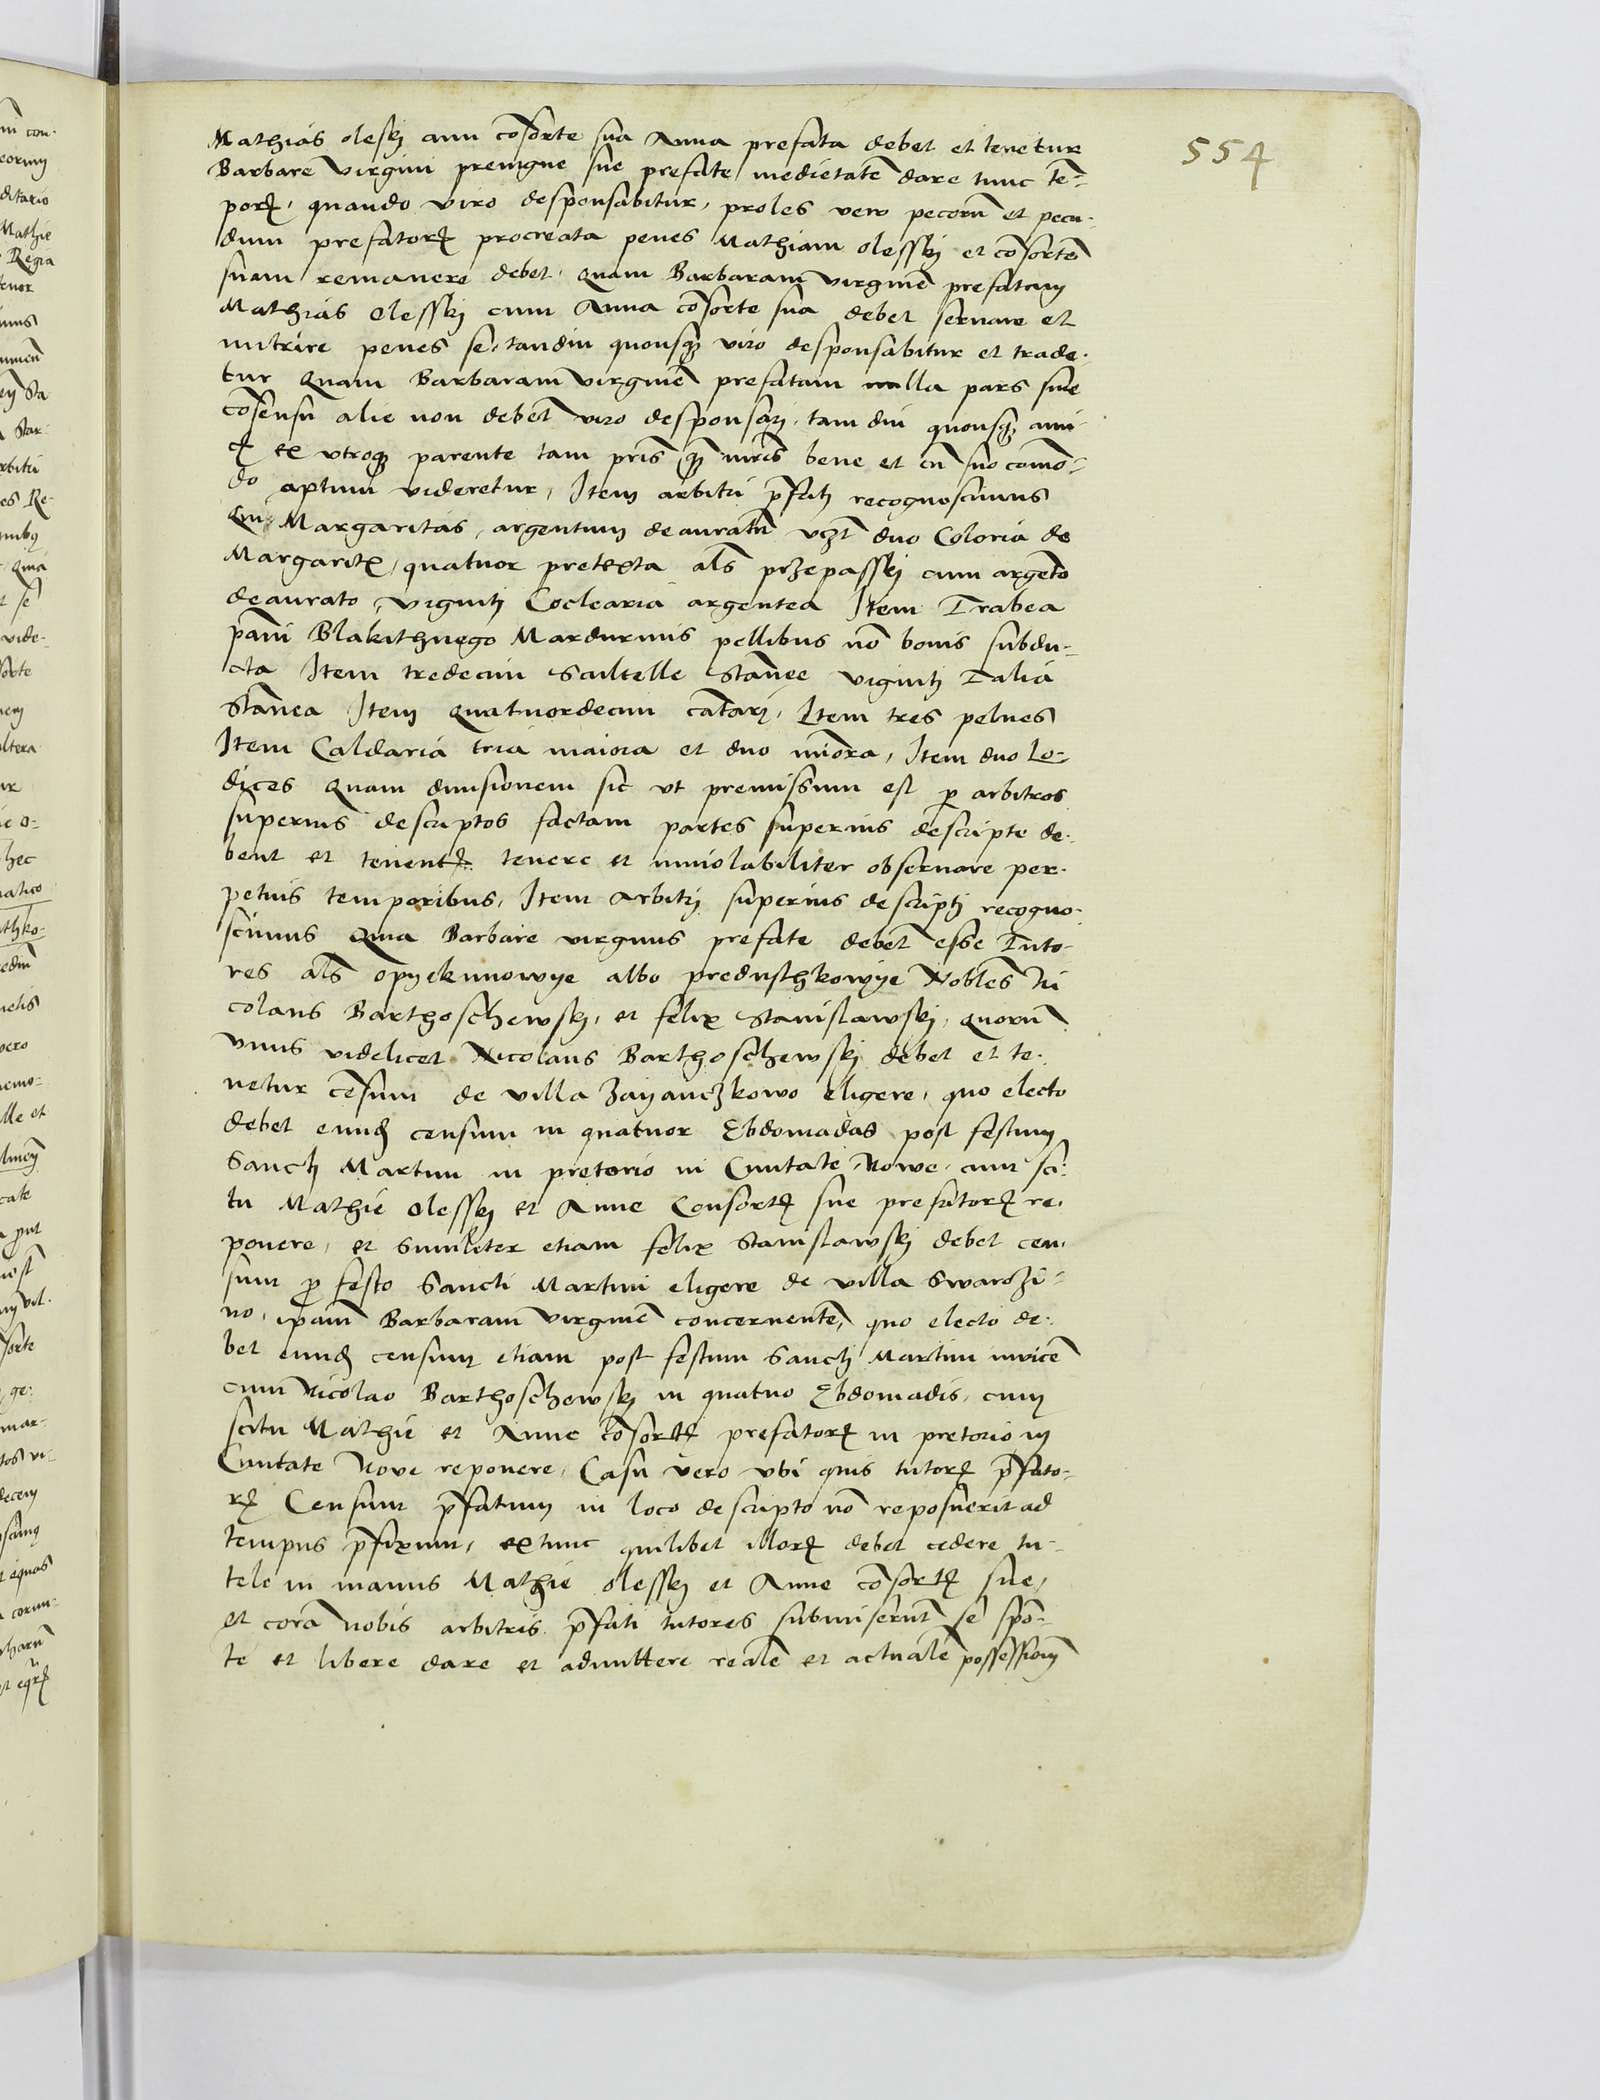 554
Mathias olesky cum cōsorte sua Anna prefata debet et tenetur
Barbare virgini preuigne sue prefate medietatē dare tunc tē-
porꝭ, quando viro desponsabitur, proles vero pecorū et pecu-
dum prefatorꝝ procreata penes Mathiam olessky et cōsortē
suam remanere debet, Quam Barbaram virginē prefatam
Mathias olessky cum Anna cōsorte sua debet seruare et
nutrire penes se, tandiu quousqꝫ viro desponsabitur et trade-
tur Quam Barbaram virginē prefatam nulla pars sine
cōsensu alie non debet viro desponsari, tam diu quousqꝫ ami-
cꝭ ex vtroqꝫ parente tam pris̄ qꝫ mr̄is bene et cū suo comō-
do aptum videretur, Item arbitri p̄fati recognoscimus
Quia Margaritas, argentum deauratū vꝫt duo Coloria de
Margaritꝭ, quatuor pretexta als̄ przepassky cum argēto
deaurato, viginti Coclearia argentea Item Trabea
pāni Blakithnego Mardurinis pellibus nō bonis subdu-
cta Item tredecim Scultelle Stānee viginti Talia
Stānea Item Quatuordecim cātari, Item tres pelues
Item Caldaria tria maiora et duo minora, Item duo Lo-
dices Quam diuisionem sic vt premissum est ꝑ arbitros
superius descriptos factam partes superius descripte de-
bent et tenentꝭ tenere et inuiolabiliter obseruare per-
petuis temporibus, Item Arbitri superius descripti recogno-
scimus Quia Barbare virginis prefate debet esse Tuto-
res als̄ opyekunowye albo przeduschkowye Nobles Ni
colaus Barthoschewsky, et felix Stanislawsky, quorū
vnus videlicet Nicolaus Barthoschewsky debet et te-
netur cēsum de villa Zayanczkowo eligere, quo electo
debet eundꝭ censum in quatuor Ebdomadas post festum
Sancti Martini in pretorio in Ciuitate Nowe, cum sci-
tu Mathie olessky et Anne Consortꝭ sue prefatorꝝ re-
ponere, et similiter etiam felix Stanislawsky debet cen-
sum ꝓ festo Sancti Martini eligere de villa Swarozi-
no, ip̄am Barbaram virginē concernentē, quo electo de-
bet eundꝭ censum etiam post festum Sancti Martini inuicē
cum Nicolao Barthoschewsky in quatuo Ebdomadis, cum
scitu Mathie et Anne cōsortꝭ prefatorꝝ in pretorio in
Ciuitate Noue reponere, Casu vero vbi quis tutorꝝ p̄fato-
rꝝ Censum p̄fatum in loco descripto nō reposuerit ad
tempus p̄fixum, extunc quilibet illorꝝ debet cedere tu-
tele in manus Mathie olessky et Anne cōsortꝭ sue,
et corā nobis arbitris p̄fati tutores submiserūt se spō-
te et libere dare et admittere realē et actualē possessionē